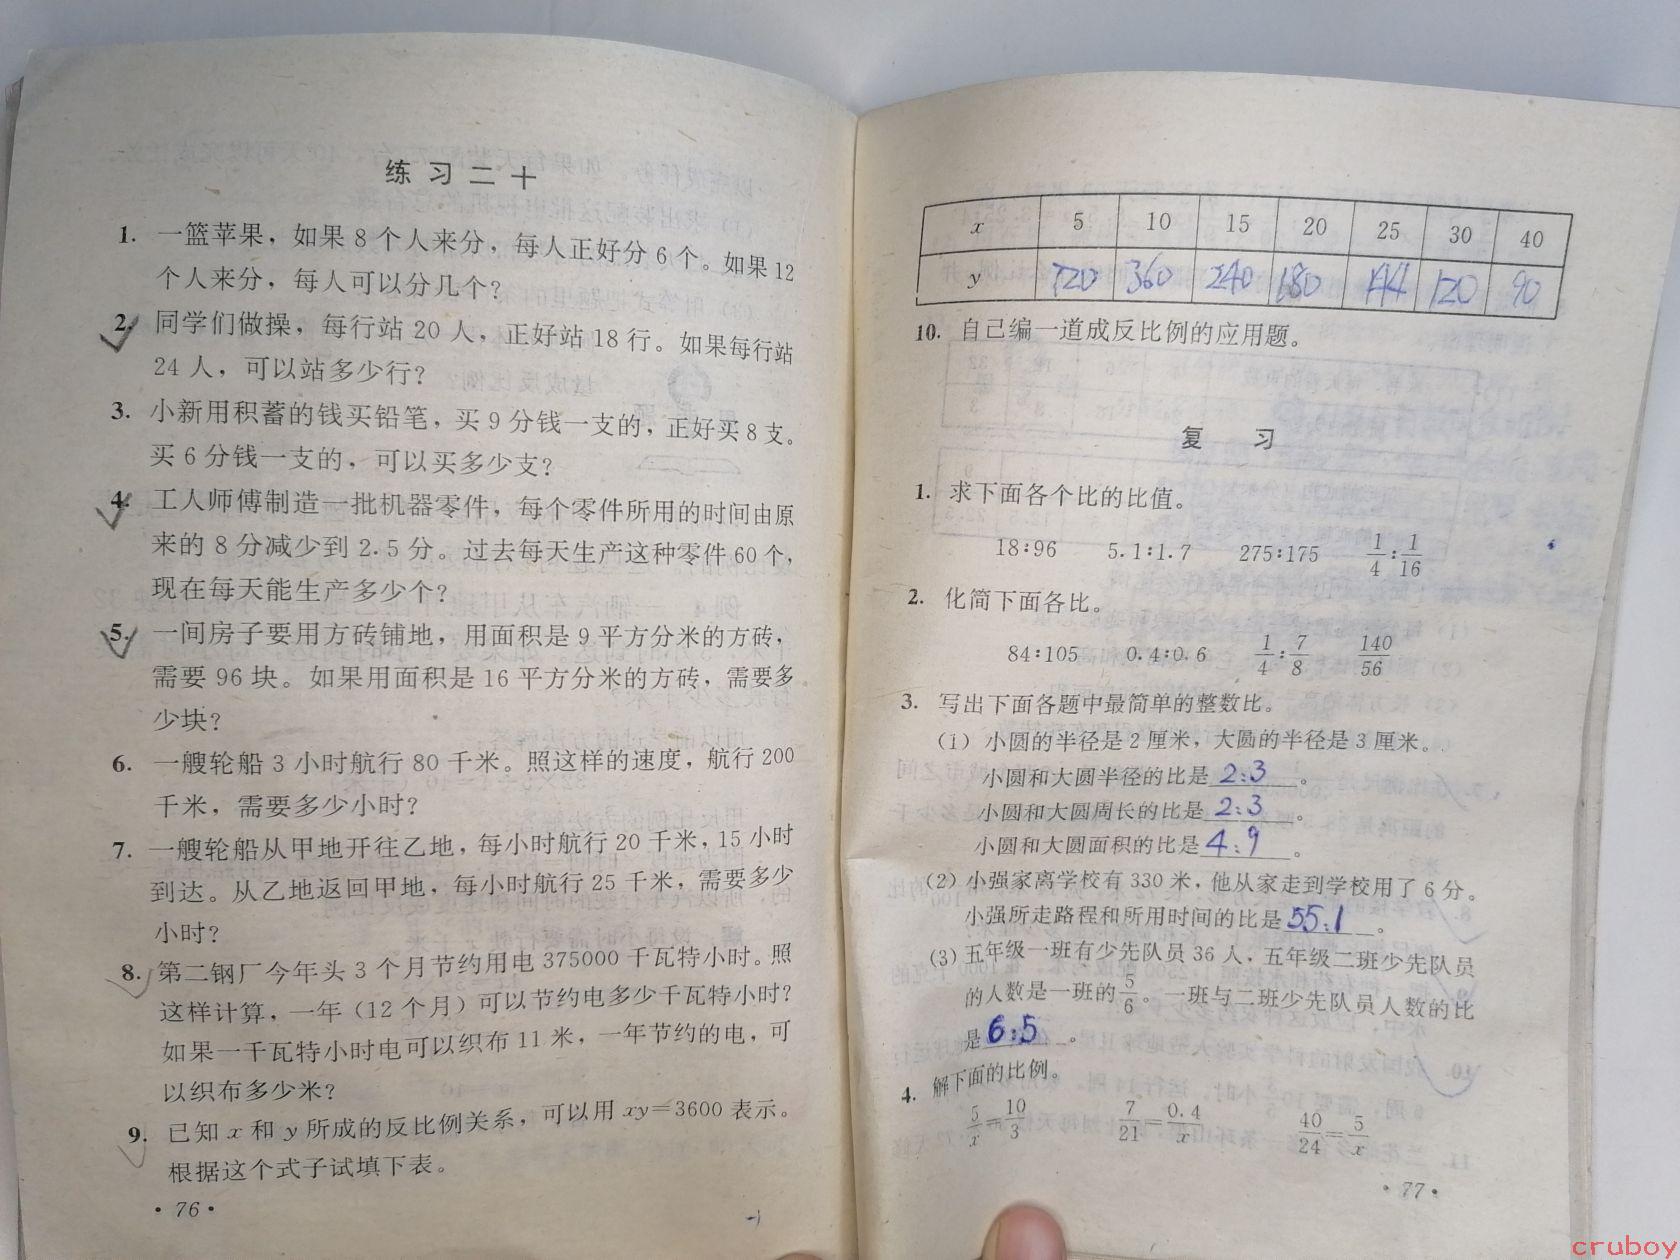 练习二十
1. 一篮苹果，如果8个人来分，每人正好分6个。如果12
个人来分，每人可以分几个？
2. 同学们做操，每行站20人，正好站18行。如果每行站
24人，可以站多少行？
3. 小新用积蓄的钱买铅笔，买9分钱一支的，正好买8支。
买6分钱一支的，可以买多少支？
4. 工人师傅制造一批机器零件，每个零件所用的时间由原
来的8分减少到2.5分。过去每天生产这种零件60个，
现在每天能生产多少个？
5. 一间房子要用方砖铺地，用面积是9平方分米的方砖，
需要96块。如果用面积是16平方分米的方砖，需要多
少块？
6. 一艘轮船3小时航行80千米。照这样的速度，航行200
千米，需要多少小时？
7. 一艘轮船从甲地开往乙地，每小时航行20千米，15小时
到达。从乙地返回甲地，每小时航行25千米，需要多少
小时？
8. 第二钢厂今年头3个月节约用电375000千瓦特小时。照
这样计算，一年（12个月）可以节约电多少千瓦特小时？
如果一千瓦特小时电可以织布11米，一年节约的电，可
以织布多少米？
9. 已知x和y所成的反比例关系，可以用xy=3600表示。
根据这个式子试填下表。
·76·
x 5 10 15 20 25 30 40
y 720 360 240 180 144 120 90
10. 自己编一道成反比例的应用题。
复习
1. 求下面各个比的比值。
18:96 5.1:1.7 275:175 1/4:1/16
2. 化简下面各比。
84:105 0.4:0.6 1/4:7/8 140/56
3. 写出下面各题中最简单的整数比。
(1) 小圆的半径是2厘米，大圆的半径是3厘米。
小圆和大圆半径的比是2:3。
小圆和大圆周长的比是2:3。
小圆和大圆面积的比是4:9。
(2) 小强家离学校有330米，他从家走到学校用了6分。
小强所走路程和所用时间的比是55:1。
(3) 五年级一班有少先队员36人，五年级二班少先队员
的人数是一班的5/6。一班与二班少先队员人数的比
是6:5。
4. 解下面的比例。
5/x=10/3 7/21=0.4/x 40/24=5/x
·77·
cruboy